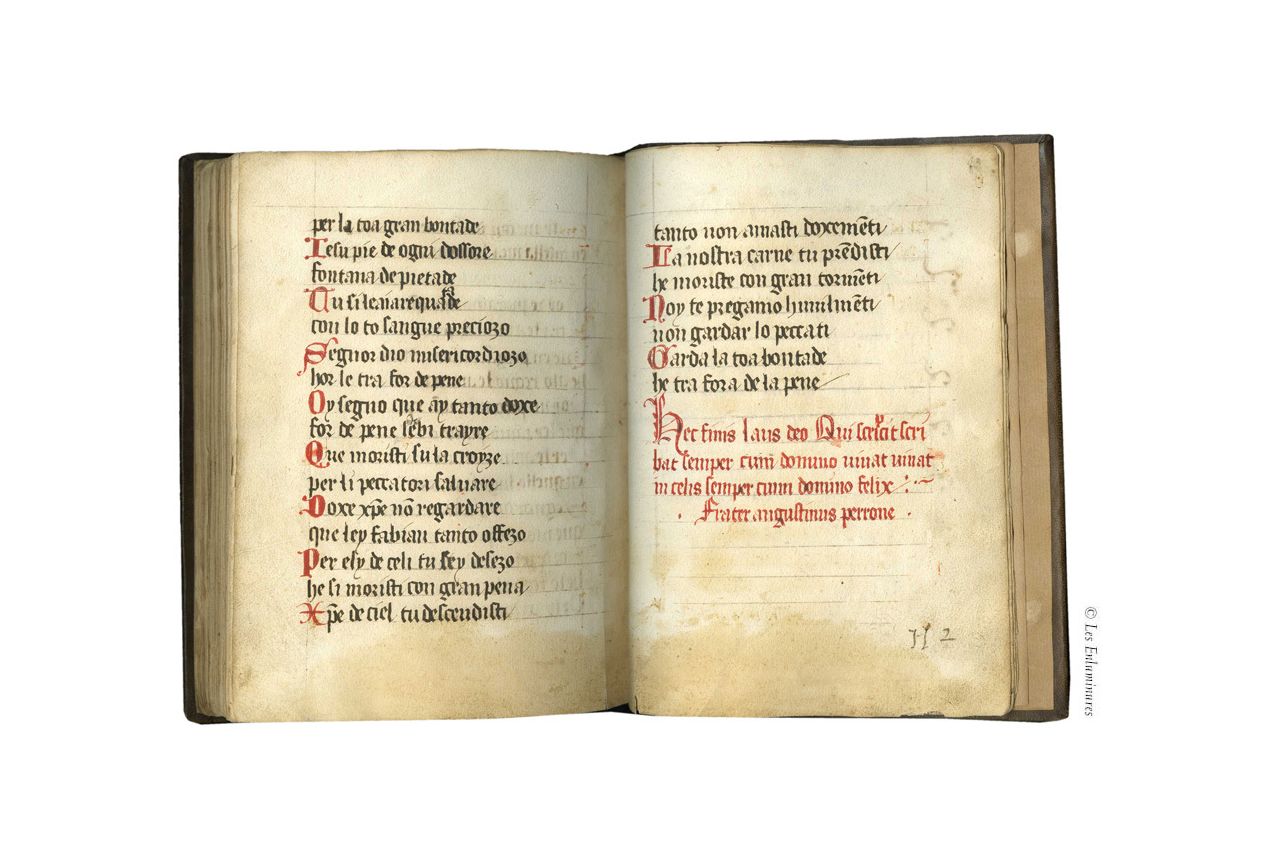 per la toa gran bontade
Iesu pie de ogni dossore
fontana de pietade
Tu si le nare
con lo to sangue preciozo
Segnor dio misericordiozo
hor le tra for de pene
Oy segno que ay tanto doxe
for de pene trayre
Que moristi su la croyze
per li peccatori saluare
Doxe xp̄e nō regardare
que ley fabian tanto offezo
Per esy de celi tu sey desezo
he si moristi con gran pena
Xp̄e de ciel tu descendisti
tanto non amasti doxemēti
La nostra carne tu prēdisti
he moriste con gran tormēti
Noy te pregamo humilmēti
non gardar lo peccati
Garda la toa bontade
he tra fora de la pene
Hec finis laus deo Qui scripcit scri
bat semper cum domino uiuat uiuat
in celis semper cum domino felix
Frater augustinus perrone
H 2
© Les Enluminures